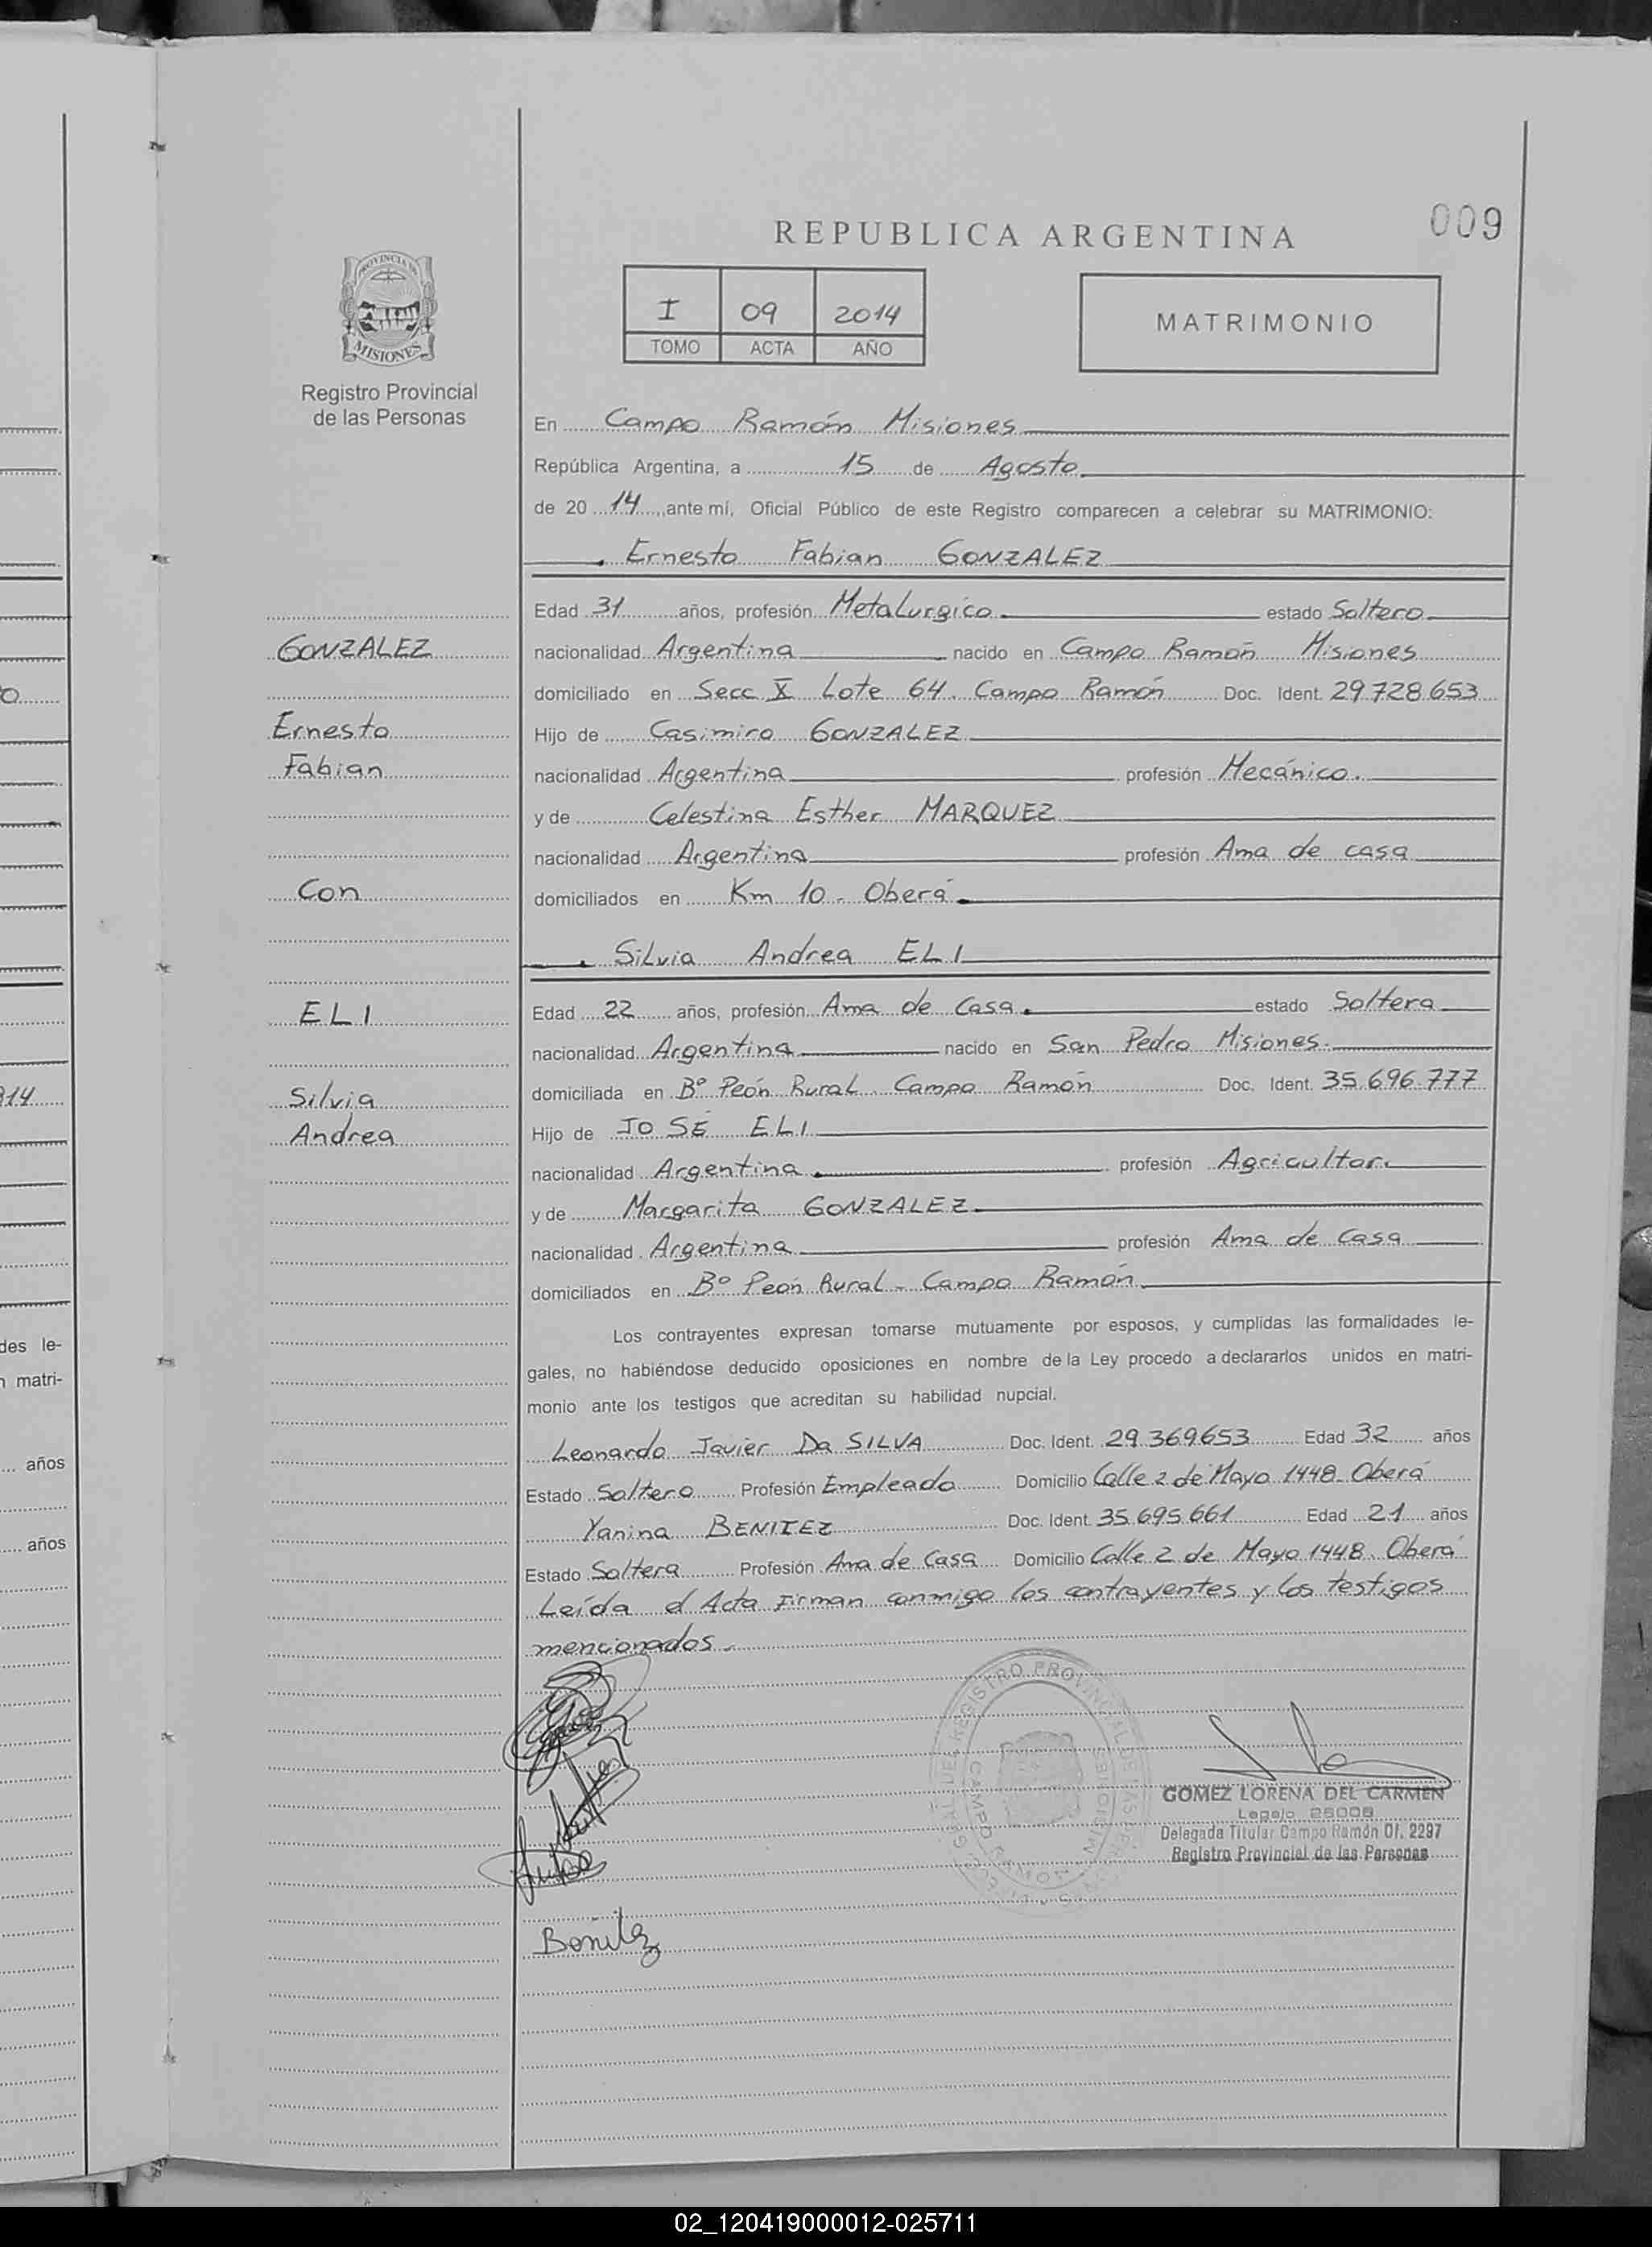 009
REPUBLICA ARGENTINA
PROVINCIA DE
MISIONES
Registro Provincial
de las Personas
I 09 2014
TOMO ACTA AÑO
MATRIMONIO
En Campo Ramón Misiones
República Argentina, a 15 de Agosto
de 20 14, ante mí, Oficial Público de este Registro comparecen a celebrar su MATRIMONIO:
Ernesto Fabian GONZALEZ
Edad 31 años, profesión Metalurgico estado Soltero
GONZALEZ
nacionalidad Argentina nacido en Campo Ramón Misiones
domiciliado en Secc X Lote 64. Campo Ramón Doc. Ident. 29.728.653
Ernesto
Hijo de Casimiro GONZALEZ
Fabian
nacionalidad Argentina profesión Mecánico.
y de Celestina Esther MARQUEZ
nacionalidad Argentina profesión Ama de casa
Con
domiciliados en Km 10 - Oberá
Silvia Andrea ELI
ELI
Edad 22 años, profesión Ama de Casa. estado Soltera
nacionalidad Argentina nacido en San Pedro Misiones.
Silvia
domiciliada en Bº Peón Rural. Campo Ramón Doc. Ident. 35.696.777
Andrea
Hijo de JOSÉ ELI
nacionalidad Argentina profesión Agricultor.
y de Margarita GONZALEZ
nacionalidad Argentina profesión Ama de Casa
domiciliados en Bº Peón Rural - Campo Ramón
Los contrayentes expresan tomarse mutuamente por esposos, y cumplidas las formalidades le-
gales, no habiéndose deducido oposiciones en nombre de la Ley procedo a declararlos unidos en matri-
monio ante los testigos que acreditan su habilidad nupcial.
Leonardo Javier Da SILVA Doc. Ident. 29.369.653 Edad 32 años
Estado Soltero Profesión Empleado Domicilio Calle 2 de Mayo 1448- Oberá
Yanina BENITEZ Doc. Ident. 35.695.661 Edad 21 años
Estado Soltera Profesión Ama de Casa Domicilio Calle 2 de Mayo 1448. Oberá
Leída el Acta Firman conmigo los contrayentes y los testigos
mencionados -
REGISTRO PROVINCIAL DE LAS PERSONAS
CAMPO RAMON MISIONES
GOMEZ LORENA DEL CARMEN
Legajo 26008
Delegada Titular Campo Ramón Of. 2297
Registro Provincial de las Personas
Benitez
des le-
n matri-
años
años
02_120419000012-025711